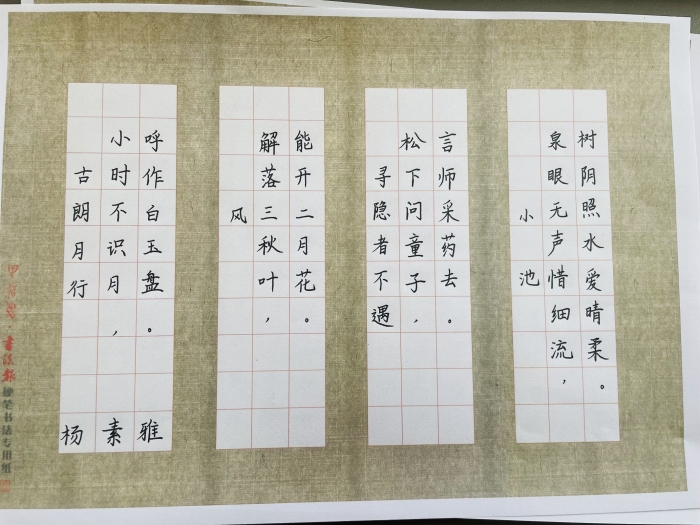 古朗月行
小时不识月，
呼作白玉盘。
杨素雅
风
解落三秋叶，
能开二月花。
寻隐者不遇
松下问童子，
言师采药去。
小池
泉眼无声惜细流，
树阴照水爱晴柔。
書法報 硬笔书法专用纸